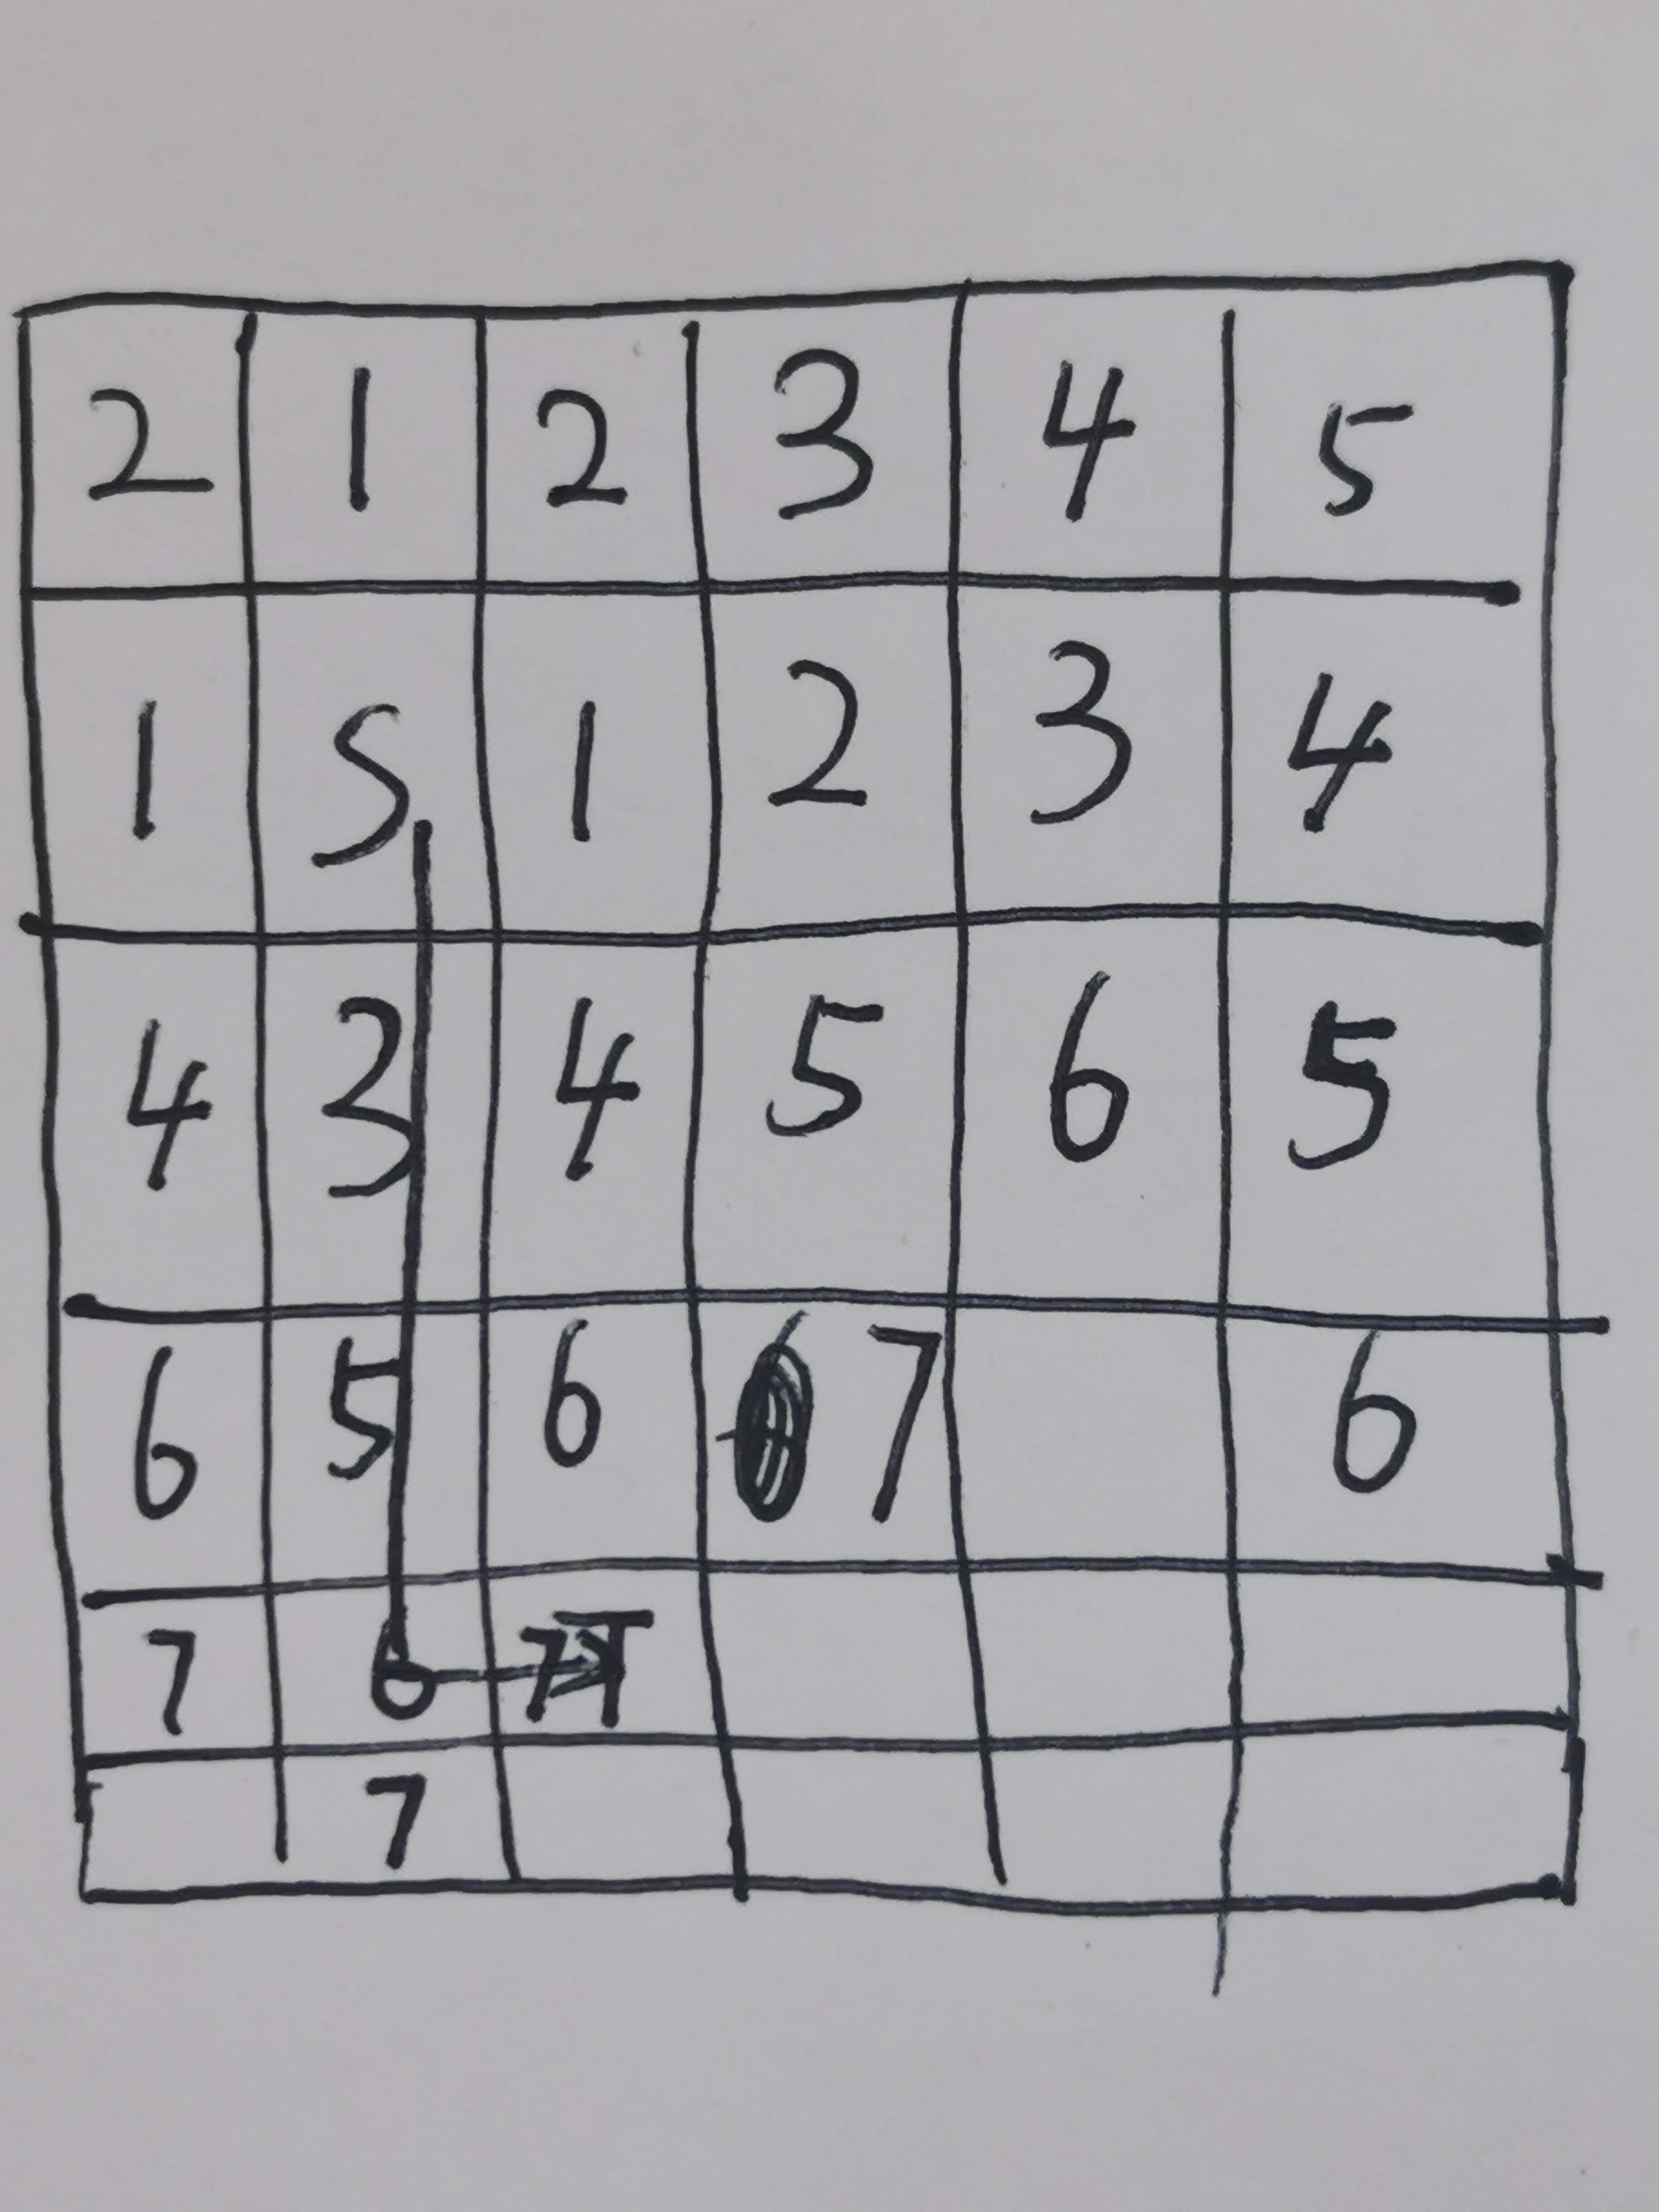 2 1 2 3 4 5
1 S 1 2 3 4
4 3 4 5 6 5
6 5 6 7 6
7 6 7 T
7